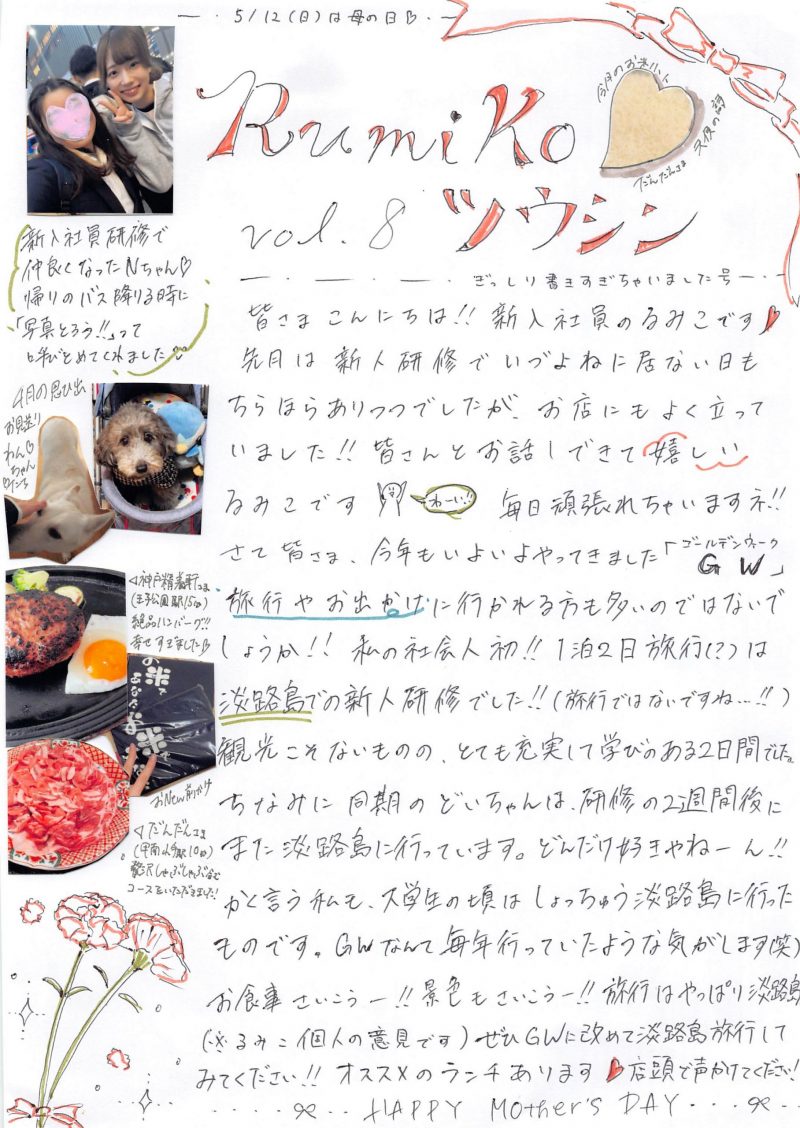 5/12(日)は母の日♡
Rumiko
ツウシン
vol. 8
今月のお米リスト
天使の詩
だんだんさま
ぎっしり書きすぎちゃいました号
新入社員研修で
仲良くなったNちゃん♡
帰りのバス降りる時に
「写真とろう!!」って
呼びとめてくれました
4月の思ひ出
お見送り
わん♡
ちゃん
皆さまこんにちは!! 新入社員のるみこです♥
先月は新人研修でいづよねに居ない日も
ちらほらありつつでしたが、お店にもよく立って
いました!! 皆さんとお話しできて嬉しい
るみこです わーい!! 毎日頑張れちゃいますネ!!
さて皆さま、今年もいよいよやってきました「GW」
ゴールデンウィーク
旅行やお出かけに行かれる方も多いのではないで
しょうか!! 私の社会人初!! 1泊2日旅行(?)は
淡路島での新人研修でした!! (旅行ではないですね…!!)
観光こそないものの、とても充実して学びのある2日間でした。
ちなみに同期のどいちゃんは、研修の2週間後に
また淡路島に行っています。どんだけ好きやねーん!!
かく言う私も、大学生の頃はしょっちゅう淡路島に行った
ものです。GWなんて毎年行っていたような気がします(笑)
お食事さいこうー!! 景色もさいこうー!! 旅行はやっぱり淡路島
(※るみこ個人の意見です) ぜひGWに改めて淡路島旅行して
みてください!! オススメのランチあります♥店頭で声かけてください!
HAPPY Mother's DAY
(王子公園駅15分)
絶品ハンバーグ!!
幸せすぎました♡
お米
あなた
米
おNew前かけ
だんだんさま
(甲南山手駅10分)
贅沢しゃぶしゃぶ
コースをいただきました!